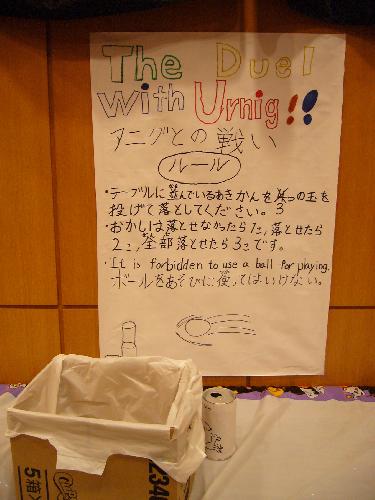 The Duel
with Urnig!!
アニグとの戦い
ルール
・テーブルに並んでいるあきかんを3つの玉を
投げて落としてください。
・おかしは落とせなかったら1こ,落とせたら
2こ,全部落とせたら3こです。
・It is forbidden to use a ball for playing.
ボールをあそびに使ってはいけない。
5箱入
234